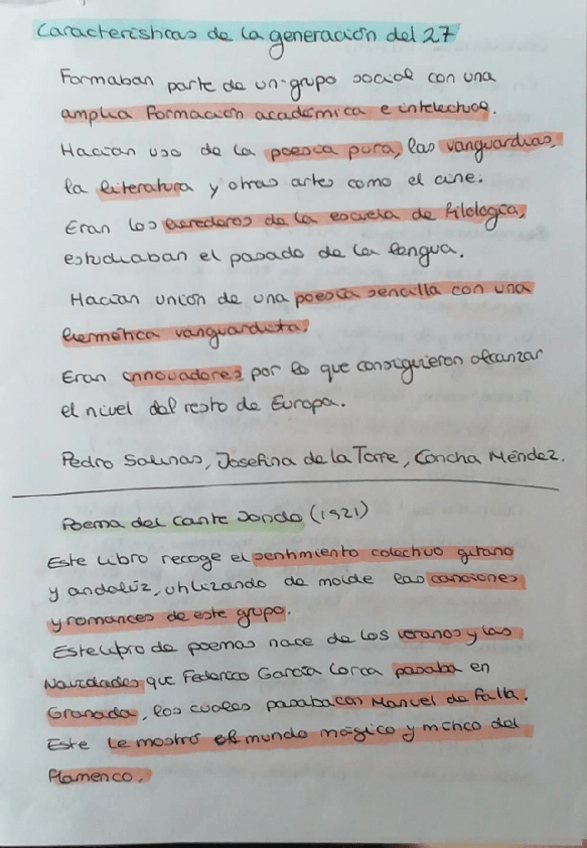 Características de la generación del 27
Formaban parte de un grupo social con una
amplia formación académica e intelectual.
Hacían uso de la poesía pura, las vanguardias,
la literatura y otras artes como el cine.
Eran los herederos de la escuela de filología,
estudiaban el pasado de la lengua.
Hacían unión de una poesía sencilla con una
hermética vanguardista.
Eran innovadores por lo que consiguieron alcanzar
el nivel del resto de Europa.
Pedro Salinas, Josefina de la Torre, Concha Méndez.
Poema del Cante Jondo (1921)
Este libro recoge el sentimiento colectivo gitano
y andaluz, utilizando de molde las canciones
y romances de este grupo.
Este libro de poemas nace de los veranos y las
Navidades que Federico García Lorca pasaba en
Granada, los cuales pasaba con Manuel de Falla.
Este le mostró el mundo mágico y mítico del
flamenco.